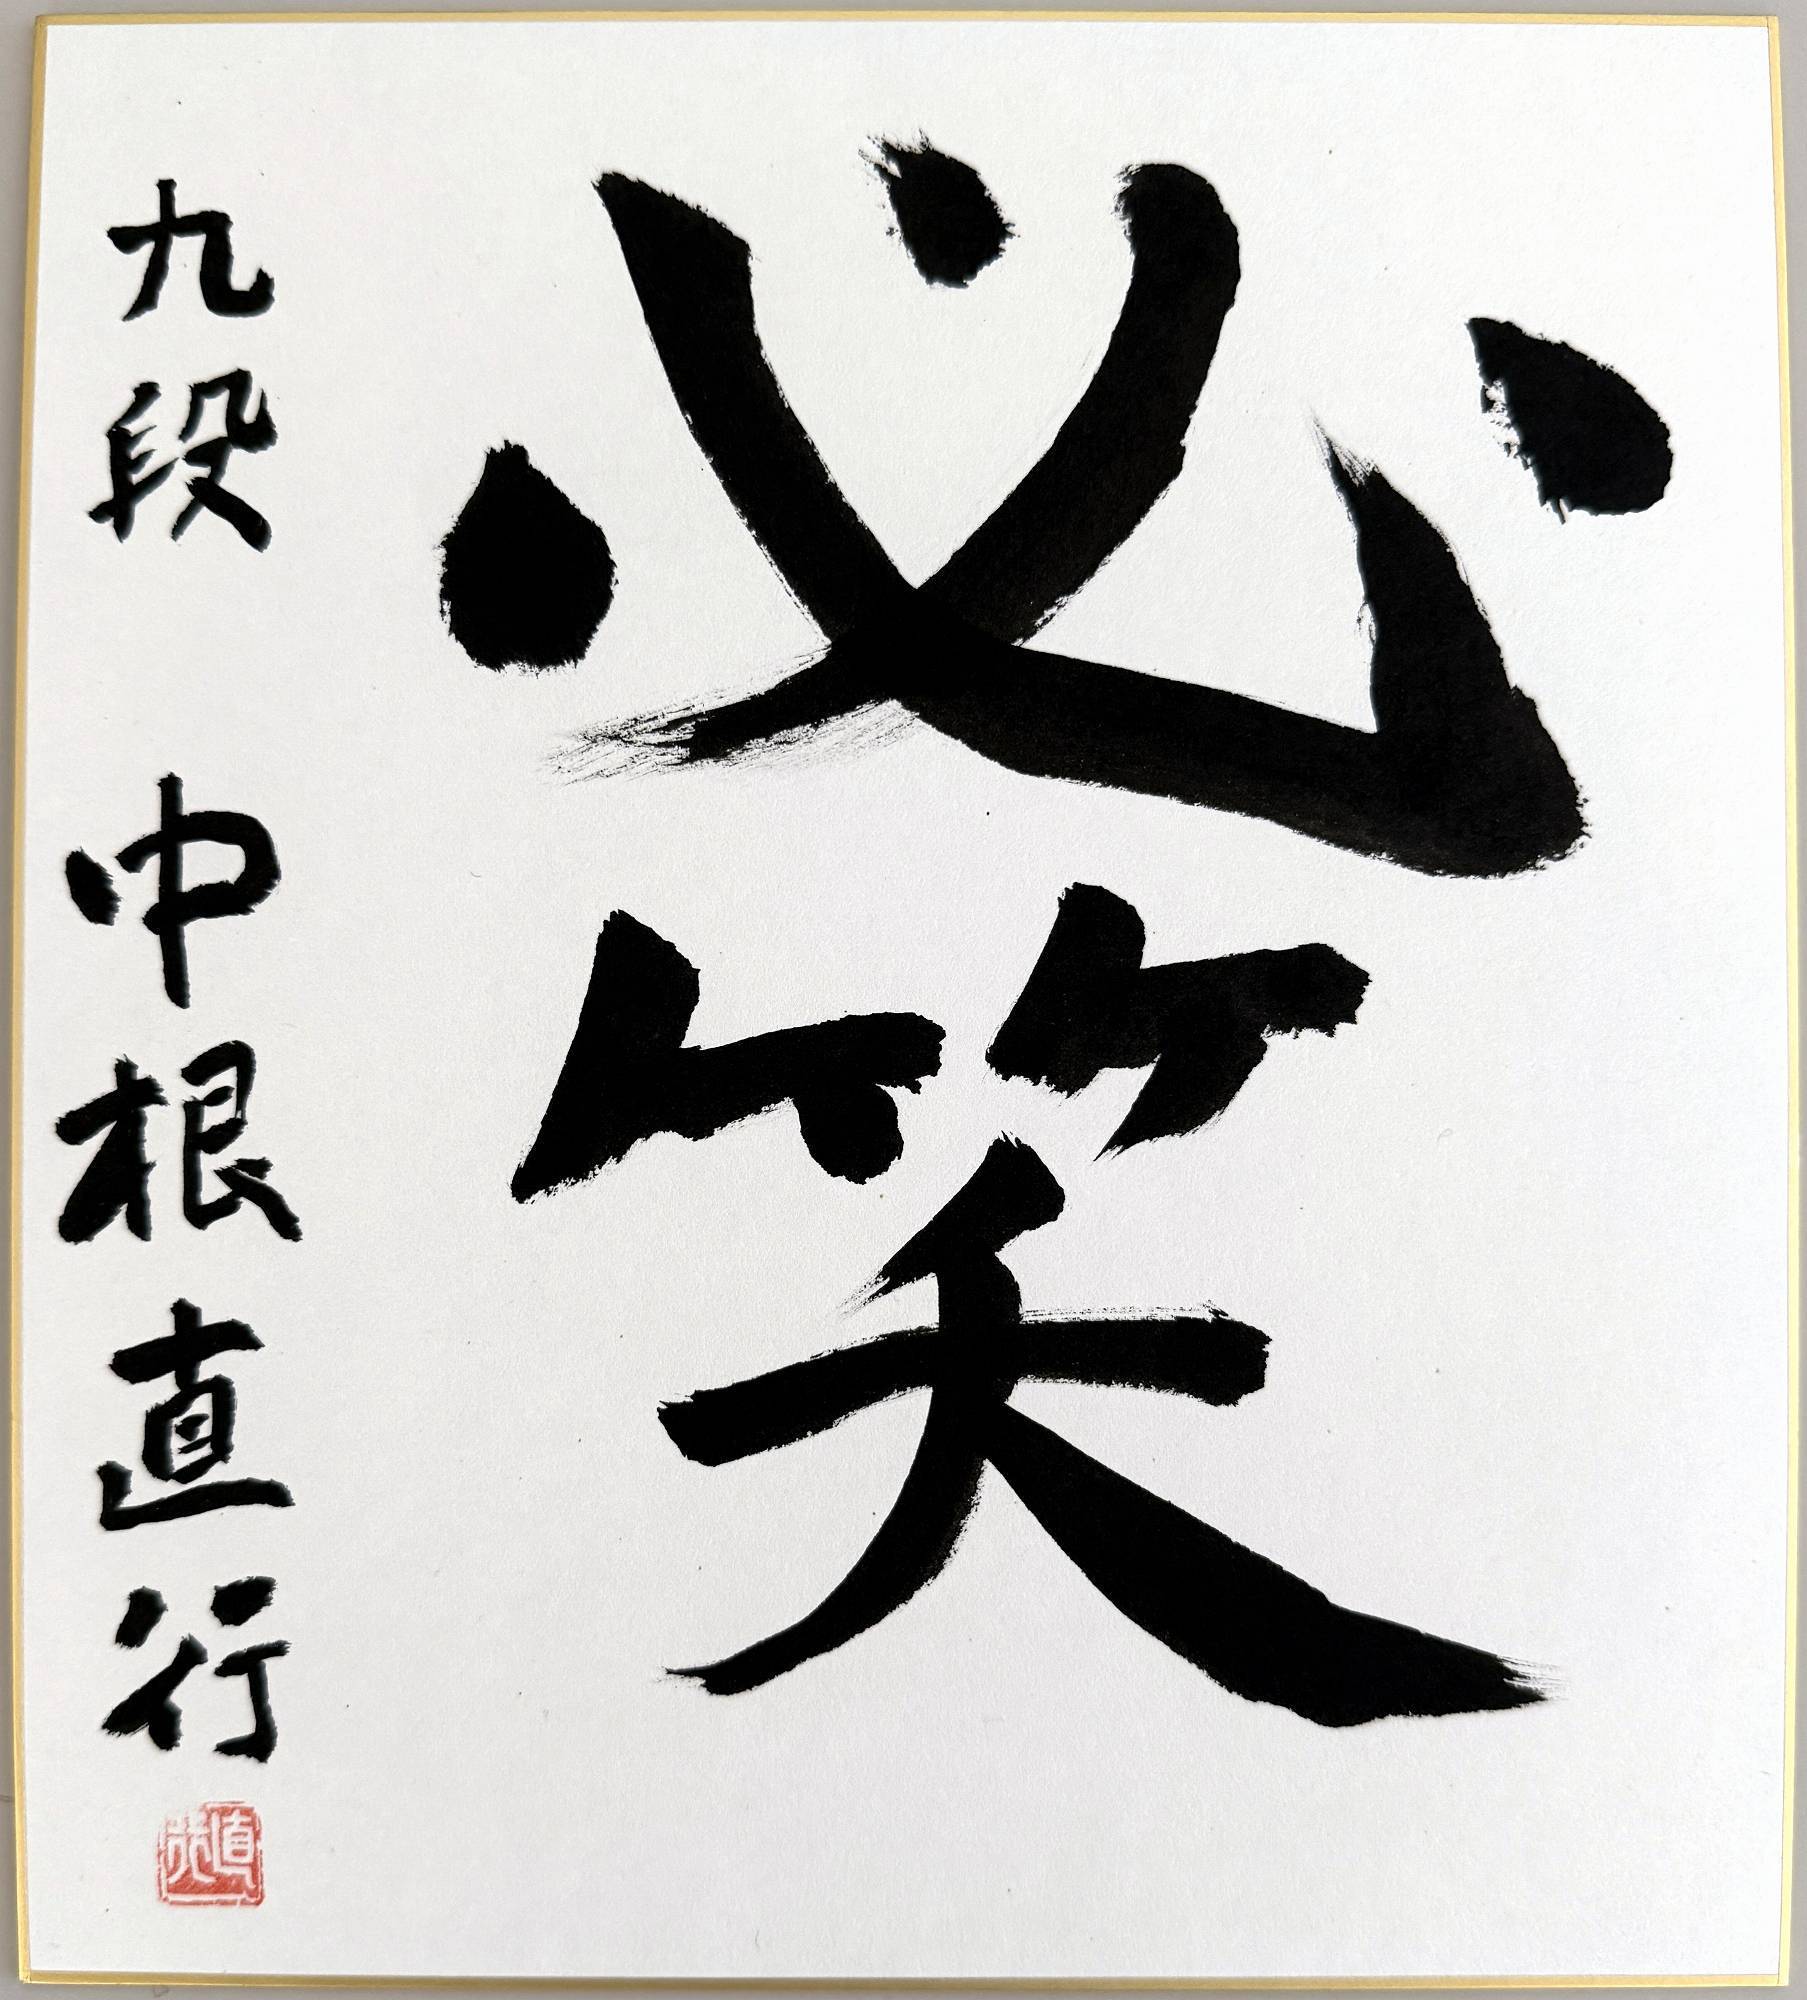 必笑
九段 中根直行
直行